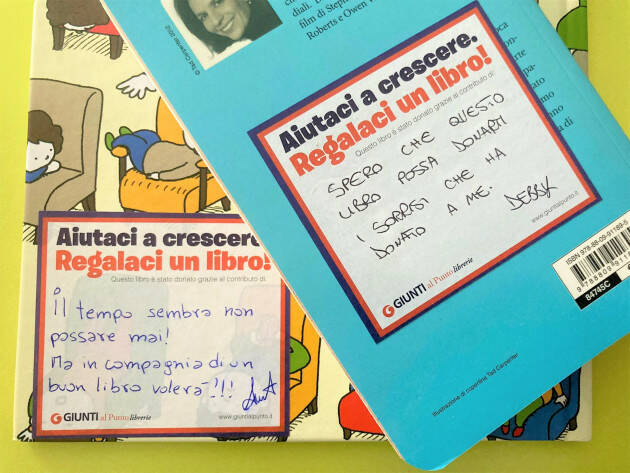 diali. D
film di Steph
Roberts e Owen W
© Tad Carpenter 2012
Aiutaci a crescere.
Regalaci un libro!
Questo libro è stato donato grazie al contributo di:
SPERO CHE QUESTO
LIBRO POSSA DONARTI
I SORRISI CHE HA
DONATO A ME.
DEBBY
www.giuntialpunto.it
GIUNTI al Punto librerie
ISBN 978-88-09-91189-5
84745C
Illustrazione di copertina Tad Carpenter
Aiutaci a crescere.
Regalaci un libro!
Questo libro è stato donato grazie al contributo di:
il tempo sembra non
passare mai!
Ma in compagnia di un
buon libro volerà!!!
GIUNTI al Punto librerie
www.giuntialpunto.it